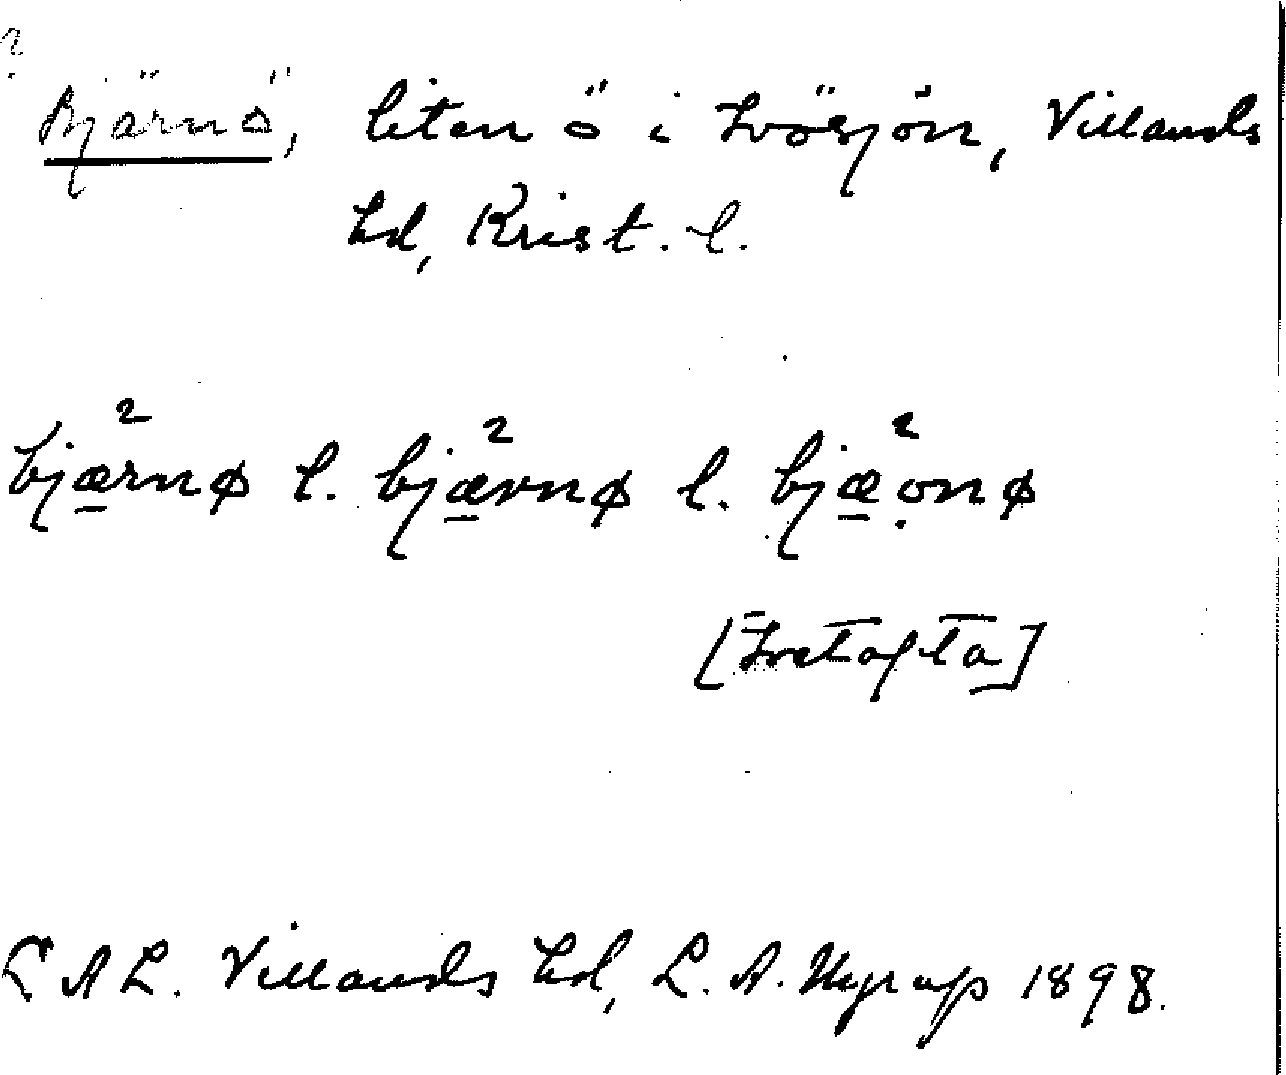 ?
Bjärnö, liten ö i Ivösjön, Villands
hd, Krist. l.
bjæ²rnø l. bjæ²rnø l. bjæ²onø
[Ivetofta]
LAL. Villands hd, L. A. Nyrup 1898.